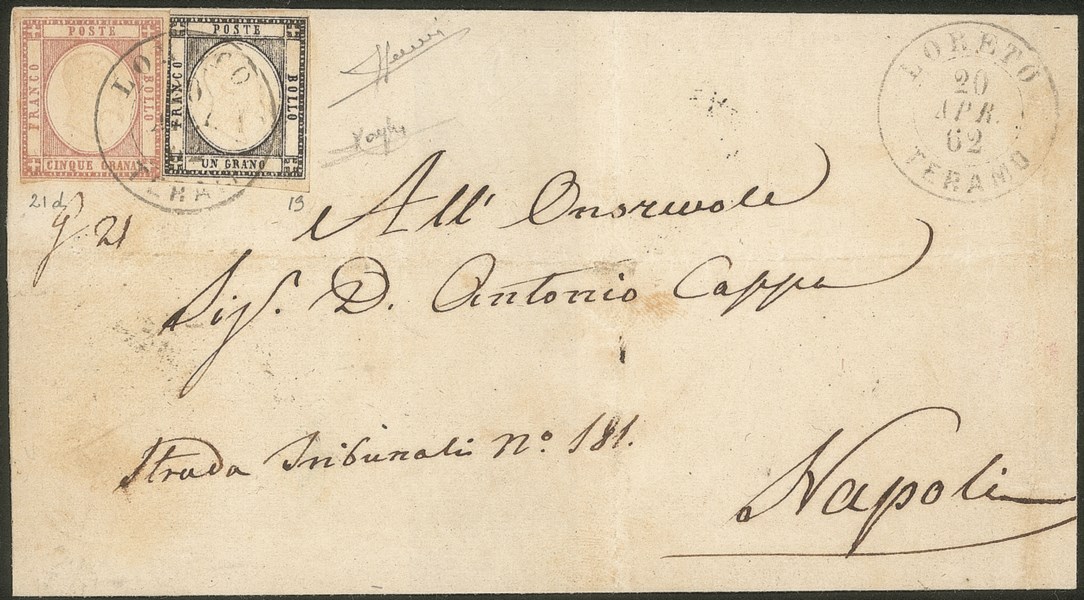 POSTE
FRANCO
BOLLO
CINQUE GRANA
POSTE
FRANCO
BOLLO
UN GRANO
LORETO
20
APR.
62
TERAMO
21 d
19
21
All' Onorevole
Sig. D. Antonio Cappa
Strada Tribunali N° 181.
Napoli